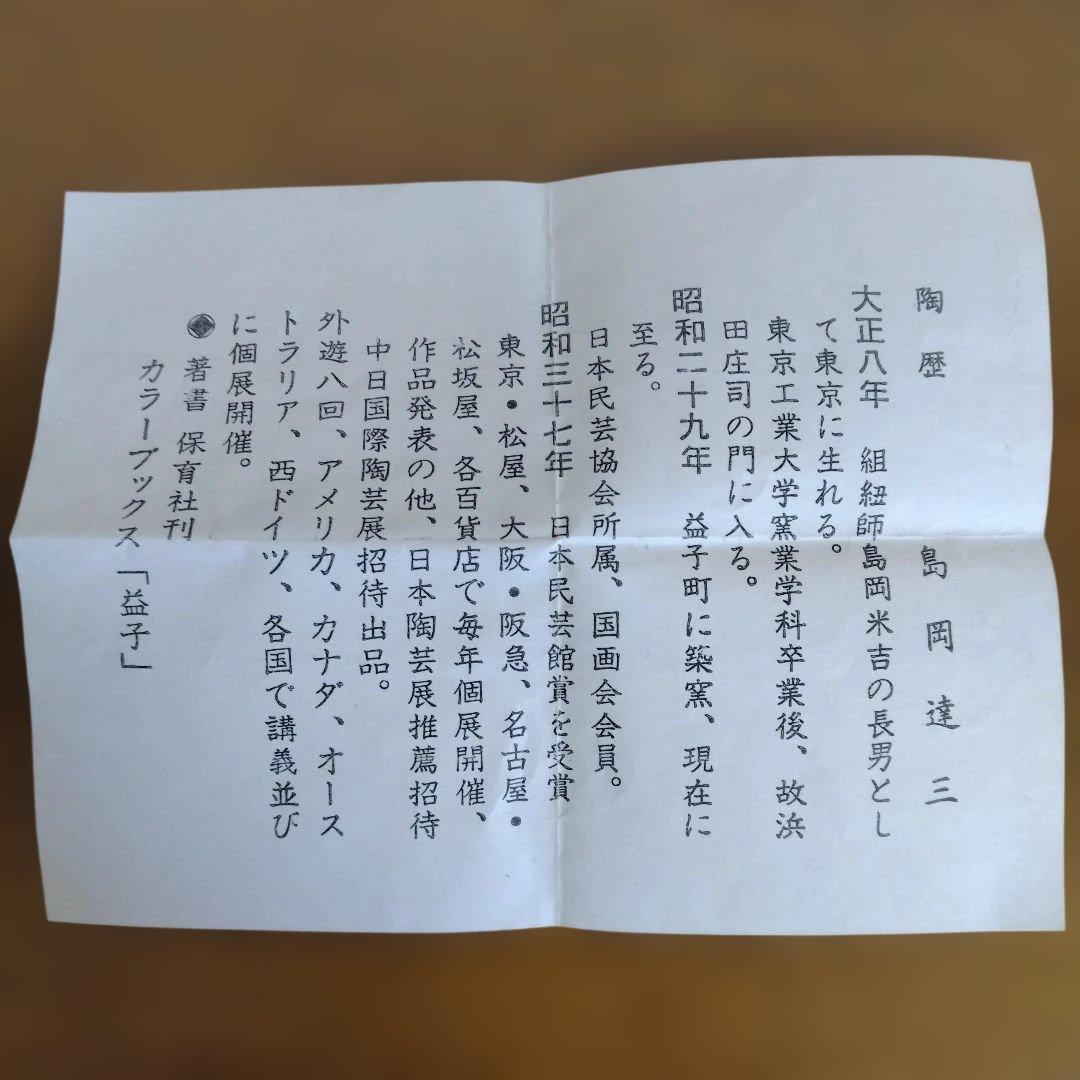 陶歴　島岡達三
大正八年　組紐師島岡米吉の長男とし
て東京に生れる。
東京工業大学窯業学科卒業後、故浜
田庄司の門に入る。
昭和二十九年　益子町に築窯、現在に
至る。
日本民芸協会所属、国画会会員。
昭和三十七年　日本民芸館賞を受賞
東京・松屋、大阪・阪急、名古屋・
松坂屋、各百貨店で毎年個展開催、
作品発表の他、日本陶芸展推薦招待
中日国際陶芸展招待出品。
外遊八回、アメリカ、カナダ、オース
トラリア、西ドイツ、各国で講義並び
に個展開催。
◉ 著書 保育社刊
カラーブックス「益子」